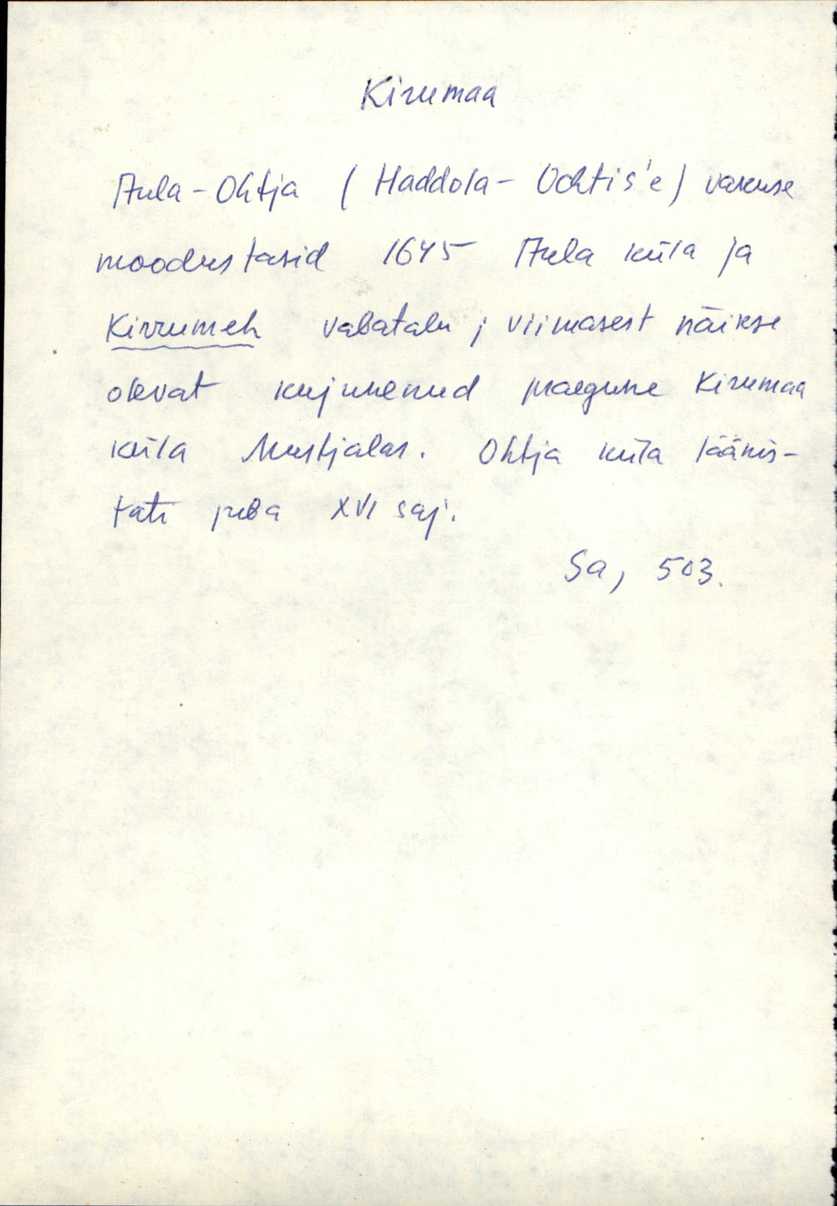 Kirumaa
Aula-Ohtja (Haddola- Ochtis'e) vakuse
moodustasid 1645 Aula küla ja
Kirrumeh vabatalu; viimasest näikse
olevat kujunenud praegune Kirumaa
küla Mustjalas. Ohtja küla läänis-
tati juba XVI saj.
Sa, 503.